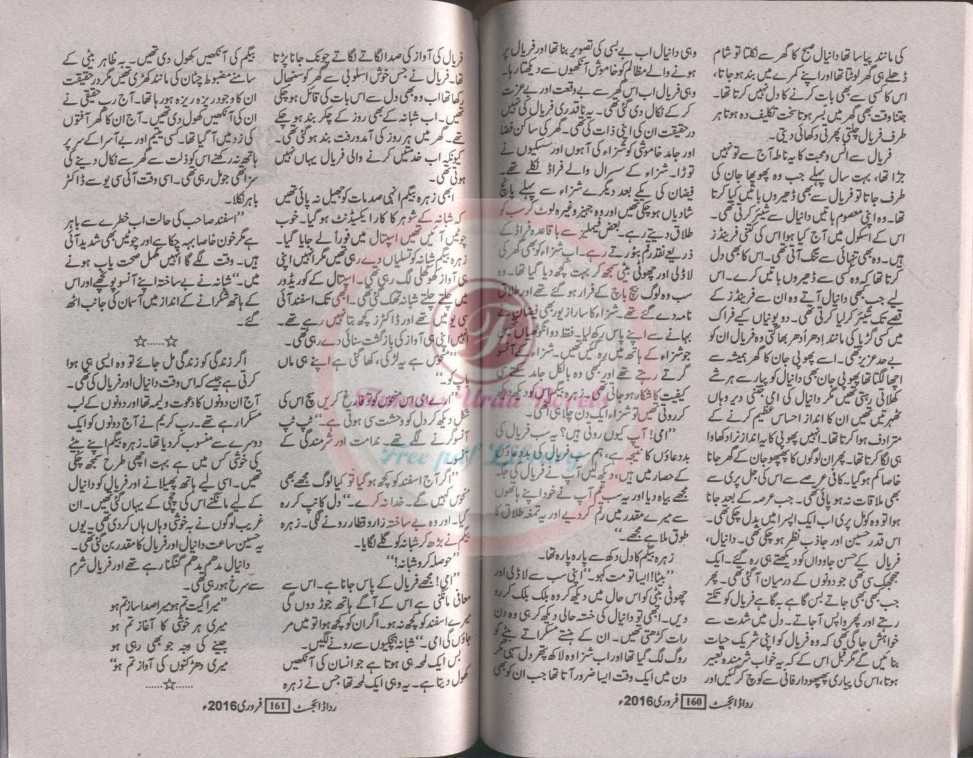 کی مانند پیاسا تھا دانیال صبح کا گھر سے نکلتا تو شام
ڈھلے ہی گھر لوٹتا تھا اور اپنے کمرے میں بند ہو جاتا،
اس کا کسی سے بھی بات کرنے کا دل نہیں کرتا تھا۔
جتنا وقت بھی گھر میں بسر ہوتا سخت تکلیف دہ ہوتا ہر
طرف فریال چلتی پھرتی دکھائی دیتی۔
فریال سے انس و محبت کا یہ ناطہ آج سے تو نہیں
جڑا تھا، بہت سال پہلے جب وہ پھوپھا جان کی
طرف جاتا تو فریال سے بھی ڈھیروں باتیں کیا کرتا
تھا۔ وہ اپنی معصوم باتیں دانیال سے شیئر کرتی تھی۔
اس کے اسکول میں آج کیا ہوا اس کی کتنی فرینڈز
ہیں۔ وہ بھی تنہائی سے تنگ آتی تھی۔ اس کا بھی دل
کرتا تھا کہ وہ کسی سے ڈھیروں باتیں کرے۔ اس
لیے جب بھی دانیال آتے وہ ان سے فرینڈز کے
قصے تک شیئر کر لیا کرتی تھی۔ دو پونیاں کیے فراک
میں کسی گڑیا کی مانند ادھر اُدھر بھاگتی وہ فریال ان کو
بے حد عزیز تھی۔ اسے پھوپی جان کا گھر ہمیشہ سے
اچھا لگتا تھا پھوپی جان بھی دانیال کو پیار سے ہر شے
کھلاتی رہتی تھیں مگر دانیال کی امی جتنی دیر وہاں
ٹھہرتیں تھیں ان کا انداز احساس عظیم کرنے کے
مترادف ہوا کرتا تھا۔ انہیں پھوپی کا یہ انداز نرا دکھاوا
ہی لگا کرتا تھا۔ پھر ان لوگوں کا پھپھو جان کے گھر جانا
خاصا کم ہو گیا۔ کافی عرصے سے اس کی جل پری سے
بھی ملاقات نہ ہو پائی تھی۔ جب عرصہ کے بعد جانا
ہوا تو وہ کومل پری اب ایک اپسرا میں بدل چکی تھی۔
اس قدر حسین اور جاذب نظر ہو چکی تھی۔ دانیال،
فریال کے حسن جاوداں کو دیکھتے ہی رہ گئے۔ ایک
جھجک سی تھی جو دونوں کے درمیان آ گئی تھی۔ پھر
جب بھی جاتے بس گاہے بگاہے فریال کو تکتے
رہتے اور پھر واپس آ جاتے۔ دل میں شدت سے
خواہش جاگی تھی کہ وہ فریال کو اپنی شریک حیات
بنائیں گے مگر قبل اس کے کہ یہ خواب شرمندہ تعبیر
ہوتا، اس کی پیاری پھپھو دار فانی سے کوچ کر گئیں اور
وہی دانیال اب بے بسی کی تصویر بنا تھا اور فریال پر
ہونے والے مظالم کو خاموش آنکھوں سے دیکھتا رہا۔
وہی فریال اب اس گھر سے بے وقعت اور بے عزت
کر کے نکال دی گئی تھی۔ یہ ناقدری فریال کی نہیں
درحقیقت ان کی اپنی ذات کی تھی۔ گھر کی ساکن فضا
اور جامد خاموشی کو شزاء کی آہوں اور سسکیوں نے
توڑا۔ شزاء کے سسرال والے فراڈ نکلے تھے۔
فیضان کی یکے بعد دیگرے شزاء سے پہلے پانچ
شادیاں ہو چکی تھیں اور وہ جہیز وغیرہ لوٹ کر سب کو
طلاق دیتے رہے۔ بعض فیملیز سے باقاعدہ فراڈ کے
ذریعے نقد رقم بٹورتے رہے۔ اب شزاء کو بھی گھر کی
لاڈلی اور چھوٹی بیٹی سمجھ کر بہت کچھ دیا گیا تھا۔ وہ
سب وہ لوگ بیچ باچ کے فرار ہو گئے تھے اور طلاق
نامہ دے گئے تھے۔ شزاء کا سارا زیور بھی فیضان نے
بہانے سے اپنے پاس رکھ لیا۔ فقط دو انگوٹھیاں تھیں
جو شزاء کے ہاتھ میں رہ گئیں تھیں۔ شزاء کے آنسو
گرتے رہتے تھے اور بھی وہ بالکل جامد سی
کیفیت کا شکار ہو جاتی تھی۔ زہرہ بیگم اس کو دیکھ دیکھ
کر روتی تھیں تو شزاء ایک دن چلا ہی اٹھی۔
”امی! آپ کیوں روتی ہیں؟ یہ سب فریال کی
بددعاؤں کا نتیجہ ہے، ہم سب فریال کی بددعاؤں
کے حصار میں ہیں، دیکھ لیں آپ نے فریال کی جگہ
مجھے بیاہ دیا اور یہ سب غم آپ نے خود اپنے ہاتھوں
سے میرے مقدر میں رقم کر دیے اور یہ تمغہ طلاق کا
طوق ملا ہے مجھے۔“
زہرہ بیگم کا دل دکھ سے پارہ پارہ تھا۔
”بیٹا! ایسا تو مت کہو۔“ اپنی سب سے لاڈلی اور
چھوٹی بیٹی کو اس حال میں دیکھ کر وہ بلک بلک کر رو
دیں۔ ابھی تو دانیال کی خستہ حالی دیکھ کر ہی وہ دن
رات کڑھتی تھیں۔ ان کے ہنستے مسکراتے بیٹے کو
روگ لگ گیا تھا اور اب شزاء وہ لاکھ پتھر دل سہی مگر
دن میں ایک وقت ایسا ضرور آتا تھا جب ان کو بھی
رداڈائجسٹ 160 فروری 2016ء
فریال کی آواز کی صدا لگاتے لگاتے چونک جانا پڑتا
تھا۔ فریال نے جس خوش اسلوبی سے گھر کو سنبھال
رکھا تھا اب وہ بھی دل سے اس بات کی قائل ہو چکی
تھیں۔ اب شبانہ کے بھی روز کے چکر بند ہو چکے
تھے۔ گھر میں ہر روز کی آمدورفت بند ہو گئی تھی۔
کیونکہ اب خدمتیں کرنے والی فریال یہاں نہیں
ہوتی تھی۔
ابھی زہرہ بیگم انہی صدمات کو جھیل نہ پائی تھیں
کہ شبانہ کے شوہر کا کار ایکسیڈنٹ ہو گیا۔ خوب
چوٹیں آئیں تھیں اسپتال میں فوراً لے جایا گیا۔
زہرہ بیگم شبانہ کو تسلیاں دے رہی تھیں مگر انہیں اپنی
ہی آواز کھوکھلی لگ رہی تھی۔ اسپتال کے کوریڈور
میں چلتے چلتے شبانہ تھک گئی تھی۔ ابھی تک اسفند آئی
سی یو میں تھے اور ڈاکٹرز کچھ بتا نہیں رہے تھے۔
انہیں اپنی ہی آواز کی بازگشت سنائی دے رہی تھی۔
”منحوس ہے یہ لڑکی، کھا گئی ہے اپنے ہی ماں
باپ کو۔“
شکل دیکھ کر دل کو وحشت سی ہوتی ہے۔“ ٹپ ٹپ
آنسو گرنے لگے تھے۔ ندامت اور شرمندگی کے
آنسو۔
”اگر آج اسفند کو کچھ ہو گیا تو کیا لوگ مجھے بھی
منحوس کہیں گے۔ خدا نہ کرے۔“ دل کانپ کر رہ
گیا۔ اور وہ بے ساختہ زار و قطار رونے لگی۔ زہرہ
بیگم نے بڑھ کر شبانہ کو گلے لگایا۔
”حوصلہ کرو شبانہ!“
”امی! مجھے فریال کے پاس جانا ہے۔ اس سے
معافی مانگنی ہے اس کے آگے ہاتھ جوڑ دوں کی
میرے اسفند کو کچھ نہ ہو۔ اگر ان کو کچھ ہوا تو میں مر
جاؤں گی امی۔“ شبانہ ہچکیوں سے رونے لگیں۔
بس ایک لمحہ ہی ہوتا ہے جو انسان کی آنکھیں
کھول دیتا ہے۔ یہ وہی ایک لمحہ تھا جس نے زہرہ
بیگم کی آنکھیں کھول دی تھیں۔ یہ ظاہر بیٹی کے
سامنے مضبوط چٹان کی مانند کھڑی تھیں مگر درحقیقت
ان کا وجود ریزہ ریزہ ہو رہا تھا۔ آج رب حقیقی نے
ان کی آنکھیں کھول دی تھیں۔ آج ان کا گھر آفتوں
کی زد میں آ گیا تھا۔ کسی یتیم اور بے آسرا کے سر پر
ہاتھ نہ رکھنے اس کو ذلت سے گھر سے نکال دینے کی
سزا تھی جو مل رہی تھی۔ اسی وقت آئی سی یو سے ڈاکٹر
باہر نکلا۔
”اسفند صاحب کی حالت اب خطرے سے باہر
ہے مگر خون خاصا بہہ چکا ہے اور چوٹیں بھی شدید آئی
ہیں۔ وقت لگے گا انہیں مکمل صحت یاب ہونے
میں۔“ شبانہ نے بے ساختہ اپنے آنسو پونچھے اور اس
کے ہاتھ شکرانے کے انداز میں آسمان کی جانب اٹھ
گئے۔
.....☆.....
اگر زندگی کو زندگی مل جائے تو وہ ایسی ہی ہوا
کرتی ہے جیسے کہ اس وقت دانیال اور فریال کی تھی۔
آج ان دونوں کا دعوت ولیمہ تھا اور دونوں کے لب
مسکرا رہے تھے۔ رب کریم نے آج دونوں کو ایک
دوسرے سے منسوب کر دیا تھا۔ زہرہ بیگم اپنے بیٹے
کی خوشی کس میں ہے بہت اچھی طرح سمجھ چکی
تھیں۔ اسی لیے ہاتھ پھیلانے اور فریال کو دانیال
کے لیے مانگنے اس کی چچی کے یہاں گئی تھیں۔ ان
غریب لوگوں نے بہ خوشی وہاں ہاں کر دی تھی۔ یوں
یہ حسین ساعت دانیال اور فریال کا مقدر بن گئی تھی۔
دانیال مدھم مدھم گنگنا رہے تھے اور فریال شرم
سے سرخ ہو رہی تھی۔
”میرا گیت تم ہو میرا صدا ساز تم ہو
میری ہر خوشی کا آغاز تم ہو
جینے کی وجہ جو بھی رہی ہو
میری دھڑکنوں کی آواز تم ہو“
.....☆.....
رداڈائجسٹ 161 فروری 2016ء
Free pdf Library